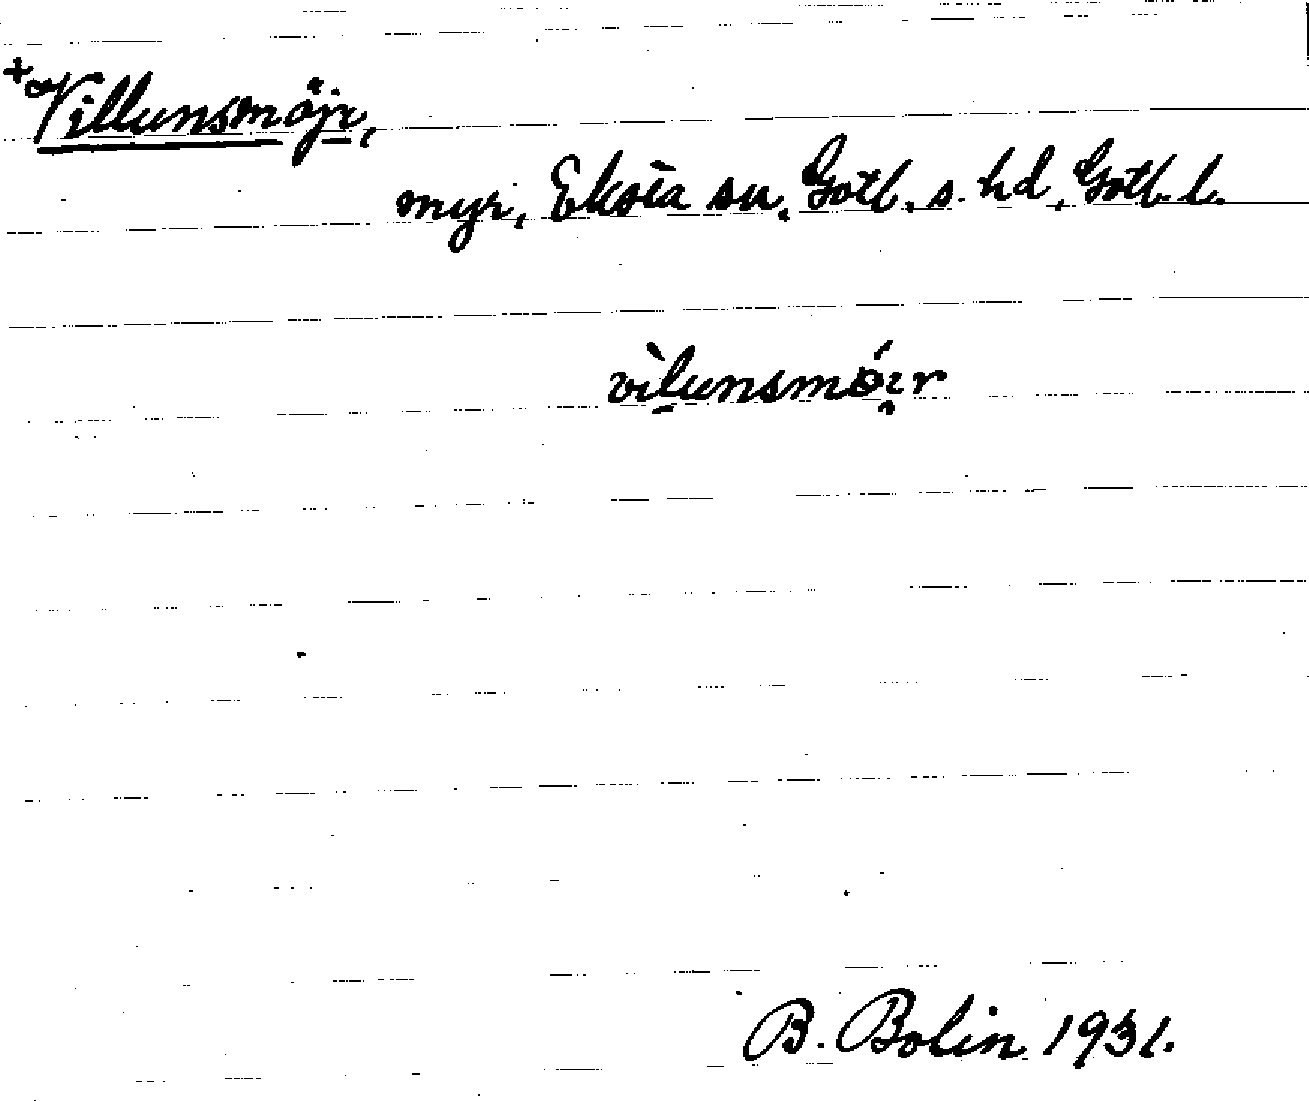 + Villunsmöjr,
myr, Eksta sn, Gotl. s. hd, Gotl. l.
vìlunsmóır
B. Bolin 1931.